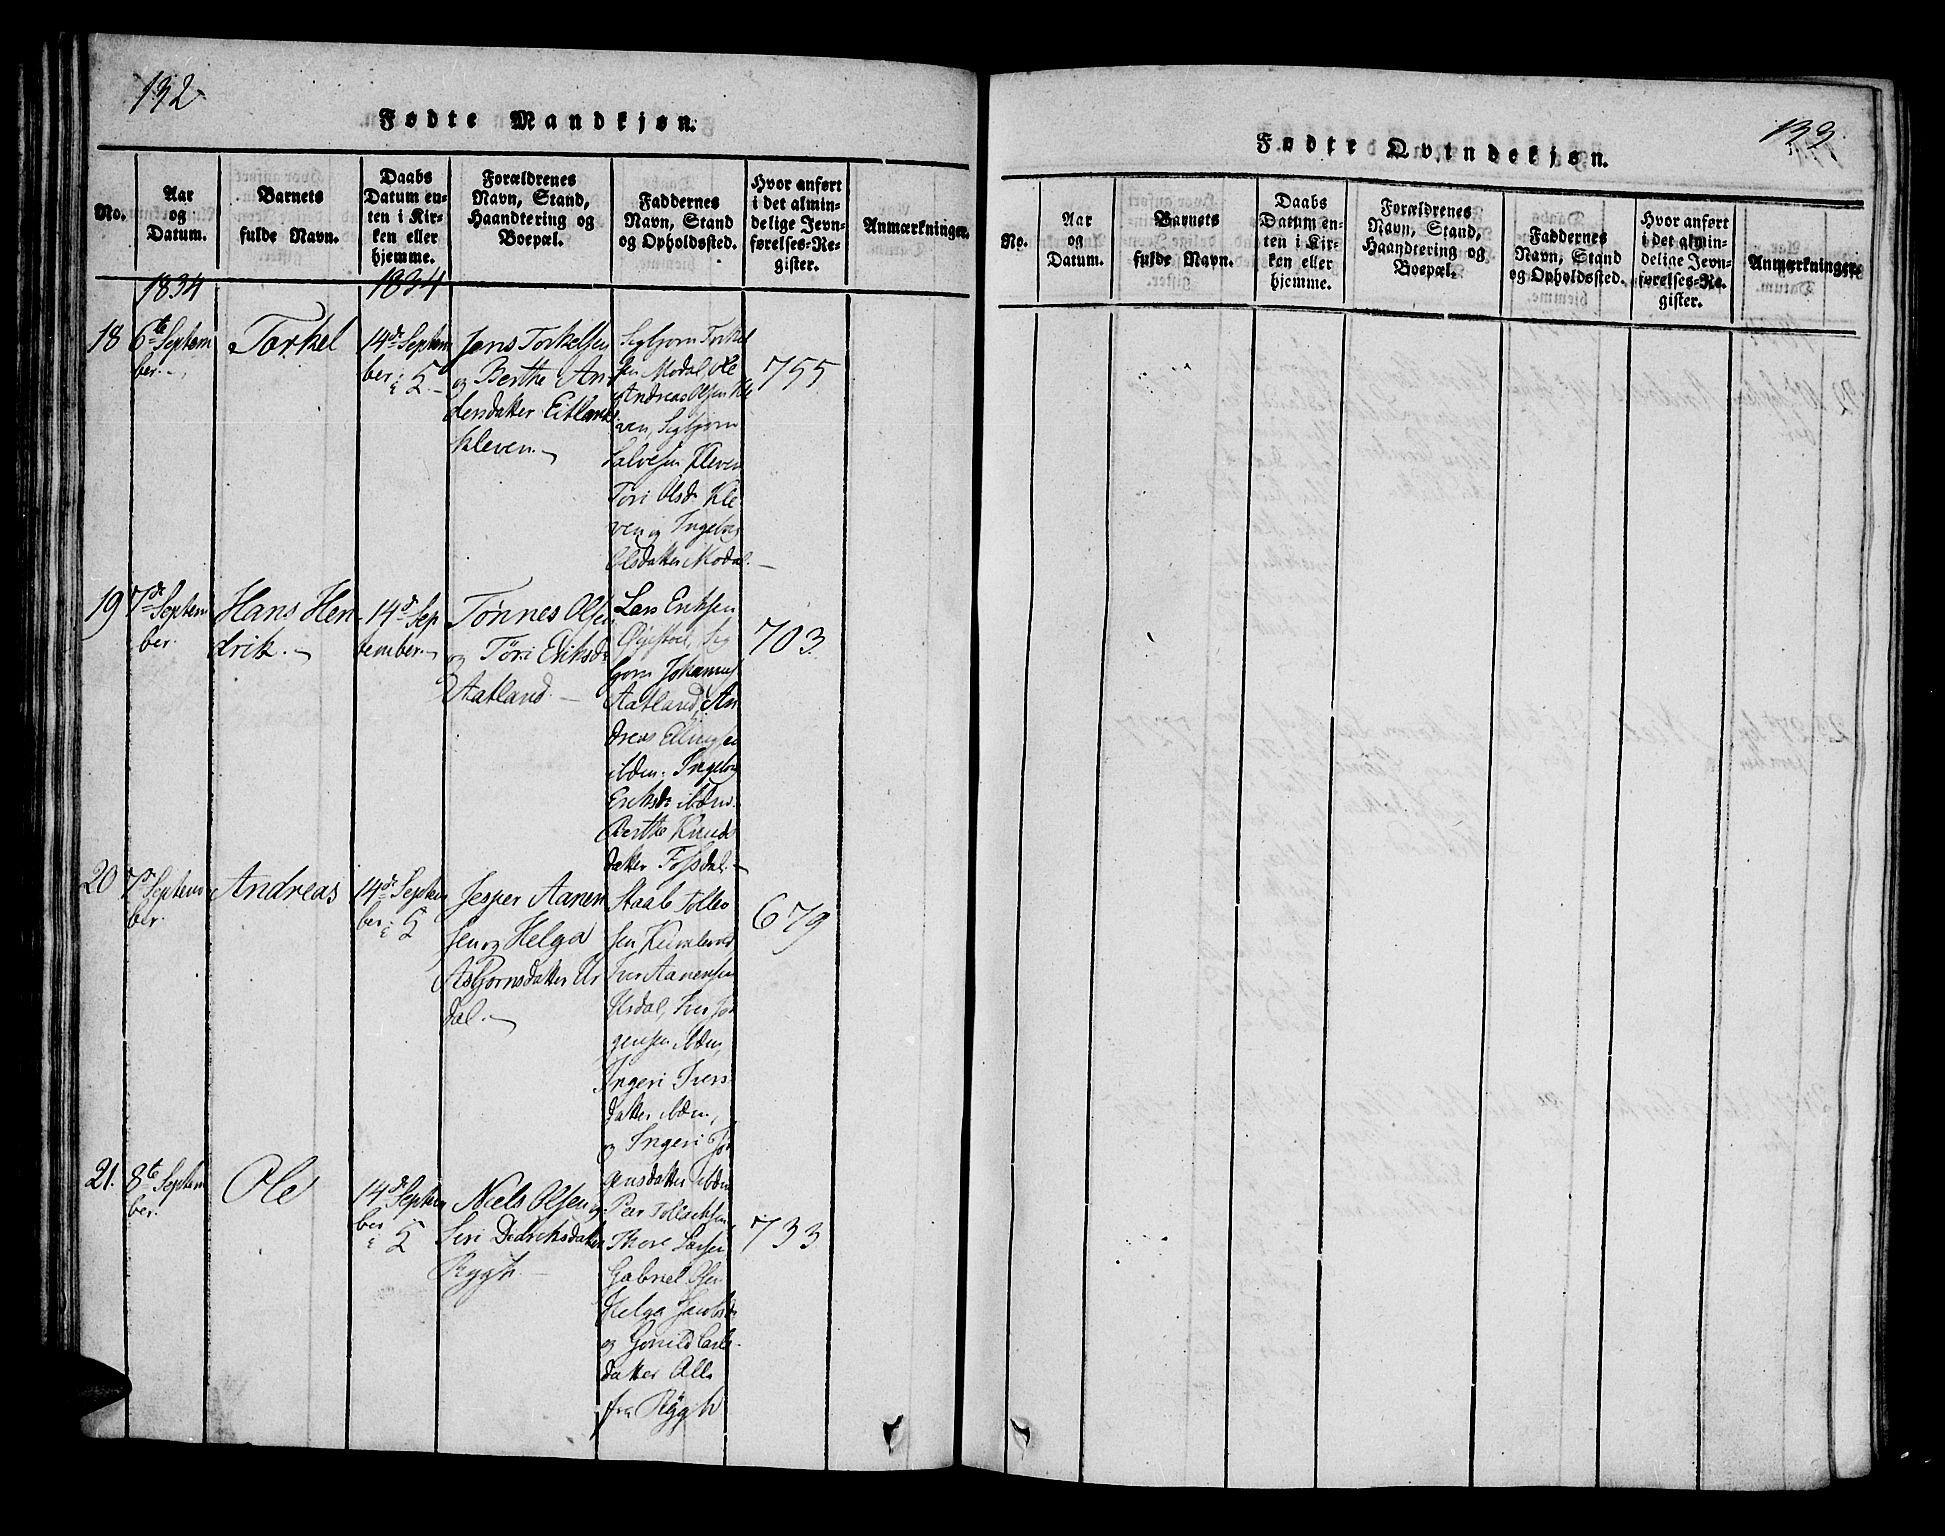 132
Fødte Mandkjøn.
No.
Aar
og
Datum.
Barnets
fulde Navn.
Daabs
Datum en-
ten i Kir-
ken eller
hjemme.
Forældrenes
Navn, Stand,
Haandtering og
Boepæl.
Faddernes
Navn, Stand
og Opholdssted.
Hvor anført
i det almin-
delige Jevn-
førelses-Re-
gister.
Anmærkninger.
1834
1834
18
6te Septem
ber.
Torkel
14de Septem
ber i
Jens Torkelsen
og Berthe An
densdatter Eitlands
kleven.
Sigbjørn Torkel
sen Modal, Ole
Andreas Olsen Kle
ven, Sigbjørn
Salvesen Kleven
Tori Olsdr Kle
ven og Ingeborg
Olsdatter Modal.
755
19
7de Septem
ber.
Hans Hen
drik.
14de Sep
tember.
Tønnes Olsen
og Tori Eriksdr
Aatland.
Lars Eriksen
Sig
bjørn Johannes
Aatland, An
dreas Ellingsen
ibdem. Ingeborg
Eriksdr ibdem.
Berthe Knuds
datter Fossdal.
703
20
7de Septem
ber.
Andreas
14de Septem
ber i
Jesper Aanen
sen og Helga
Asbjørnsdatter Ur
dal.
Staale Tollev
sen
Iver Aanensen
Urdal, Iver Jør
gensen ibdem,
Ingeri Ivers
datter ibdem,
og Ingeri Jør
gensdatter ibdem
679
21.
8te Septem
ber.
Ole
14de Septem
ber i
Niels Olsen og
Siri Didriksdatter
Rygh.
Peer Tollachsen
Thore Larsen
Gabriel Olsen
Helga Jacobsdr
og Gunild Carls-
datter Alle
fra Rygh
733
133.
Fødte Qvindekjøn.
No.
Aar
og
Datum.
Barnets
fulde Navn.
Daabs
Datum en-
ten i Kir-
ken eller
hjemme.
Forældrenes
Navn, Stand,
Haandtering og
Boepæl.
Faddernes
Navn, Stand
og Opholdssted.
Hvor anført
i det almin-
delige Jevn-
førelses-Re-
gister.
Anmærkninger.